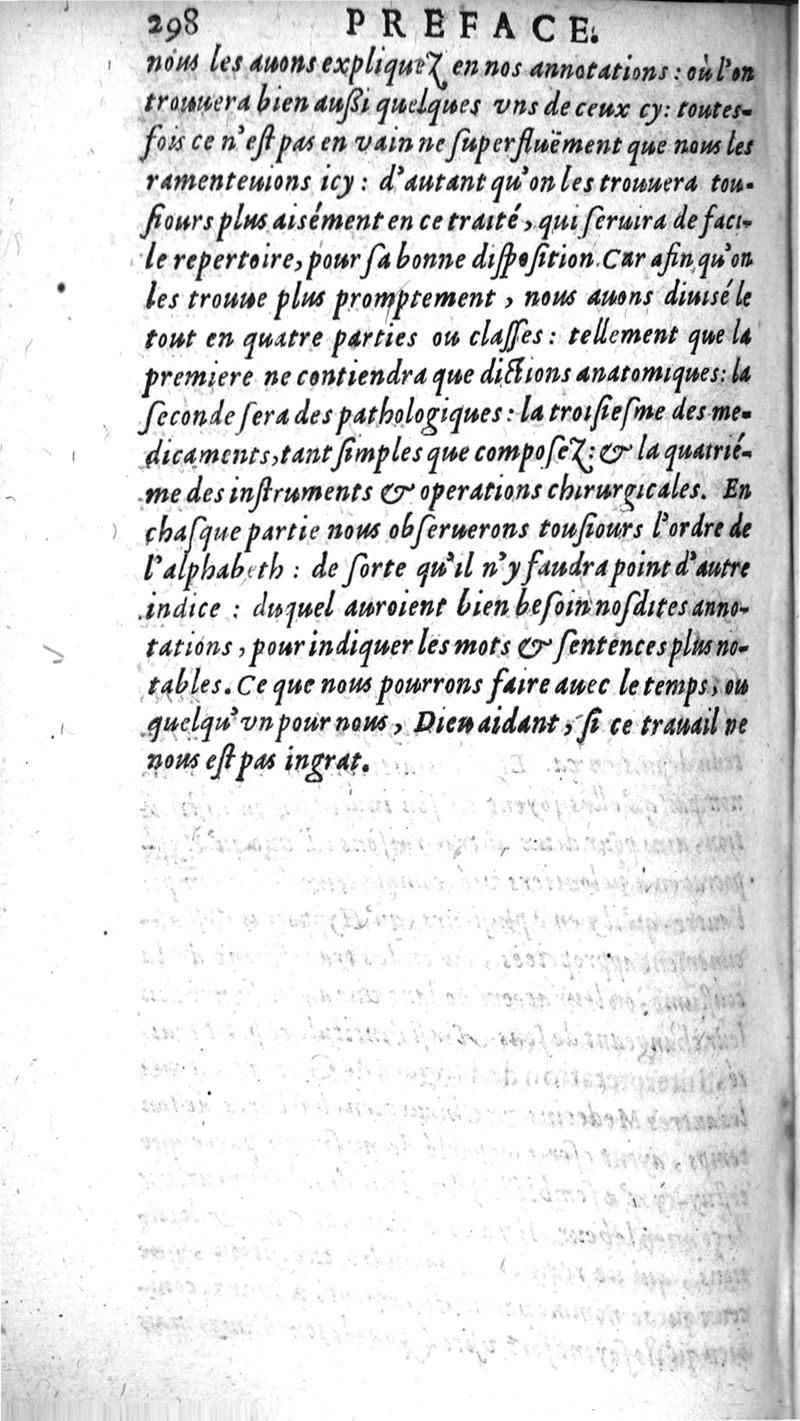 298 PREFACE.
nous les auons expliquez en nos annotations : où l'on
trouuera bien außi quelques vns de ceux cy : toutes-
fois ce n'eſt pas en vain ne ſuperfluëment que nous les
ramenteuions icy : d'autant qu'on les trouuera tou-
ſiours plus aisément en ce traité, qui ſeruira de faci-
le repertoire, pour ſa bonne diſpoſition. Car afin qu'on
les trouue plus promptement, nous auons diuisé le
tout en quatre parties ou claſſes : tellement que la
premiere ne contiendra que dictions anatomiques : la
ſeconde ſera des pathologiques : la troiſieſme des me-
dicaments, tant ſimples que compoſez : & la quatrié-
me des inſtruments & operations chirurgicales. En
chaſque partie nous obſeruerons touſiours l'ordre de
l'alphabeth : de ſorte qu'il n'y faudra point d'autre
indice : duquel auroient bien beſoin noſdites anno-
tations, pour indiquer les mots & ſentences plus no-
tables. Ce que nous pourrons faire auec le temps, ou
quelqu'vn pour nous, Dieu aidant, ſi ce trauail ne
nous eſt pas ingrat.